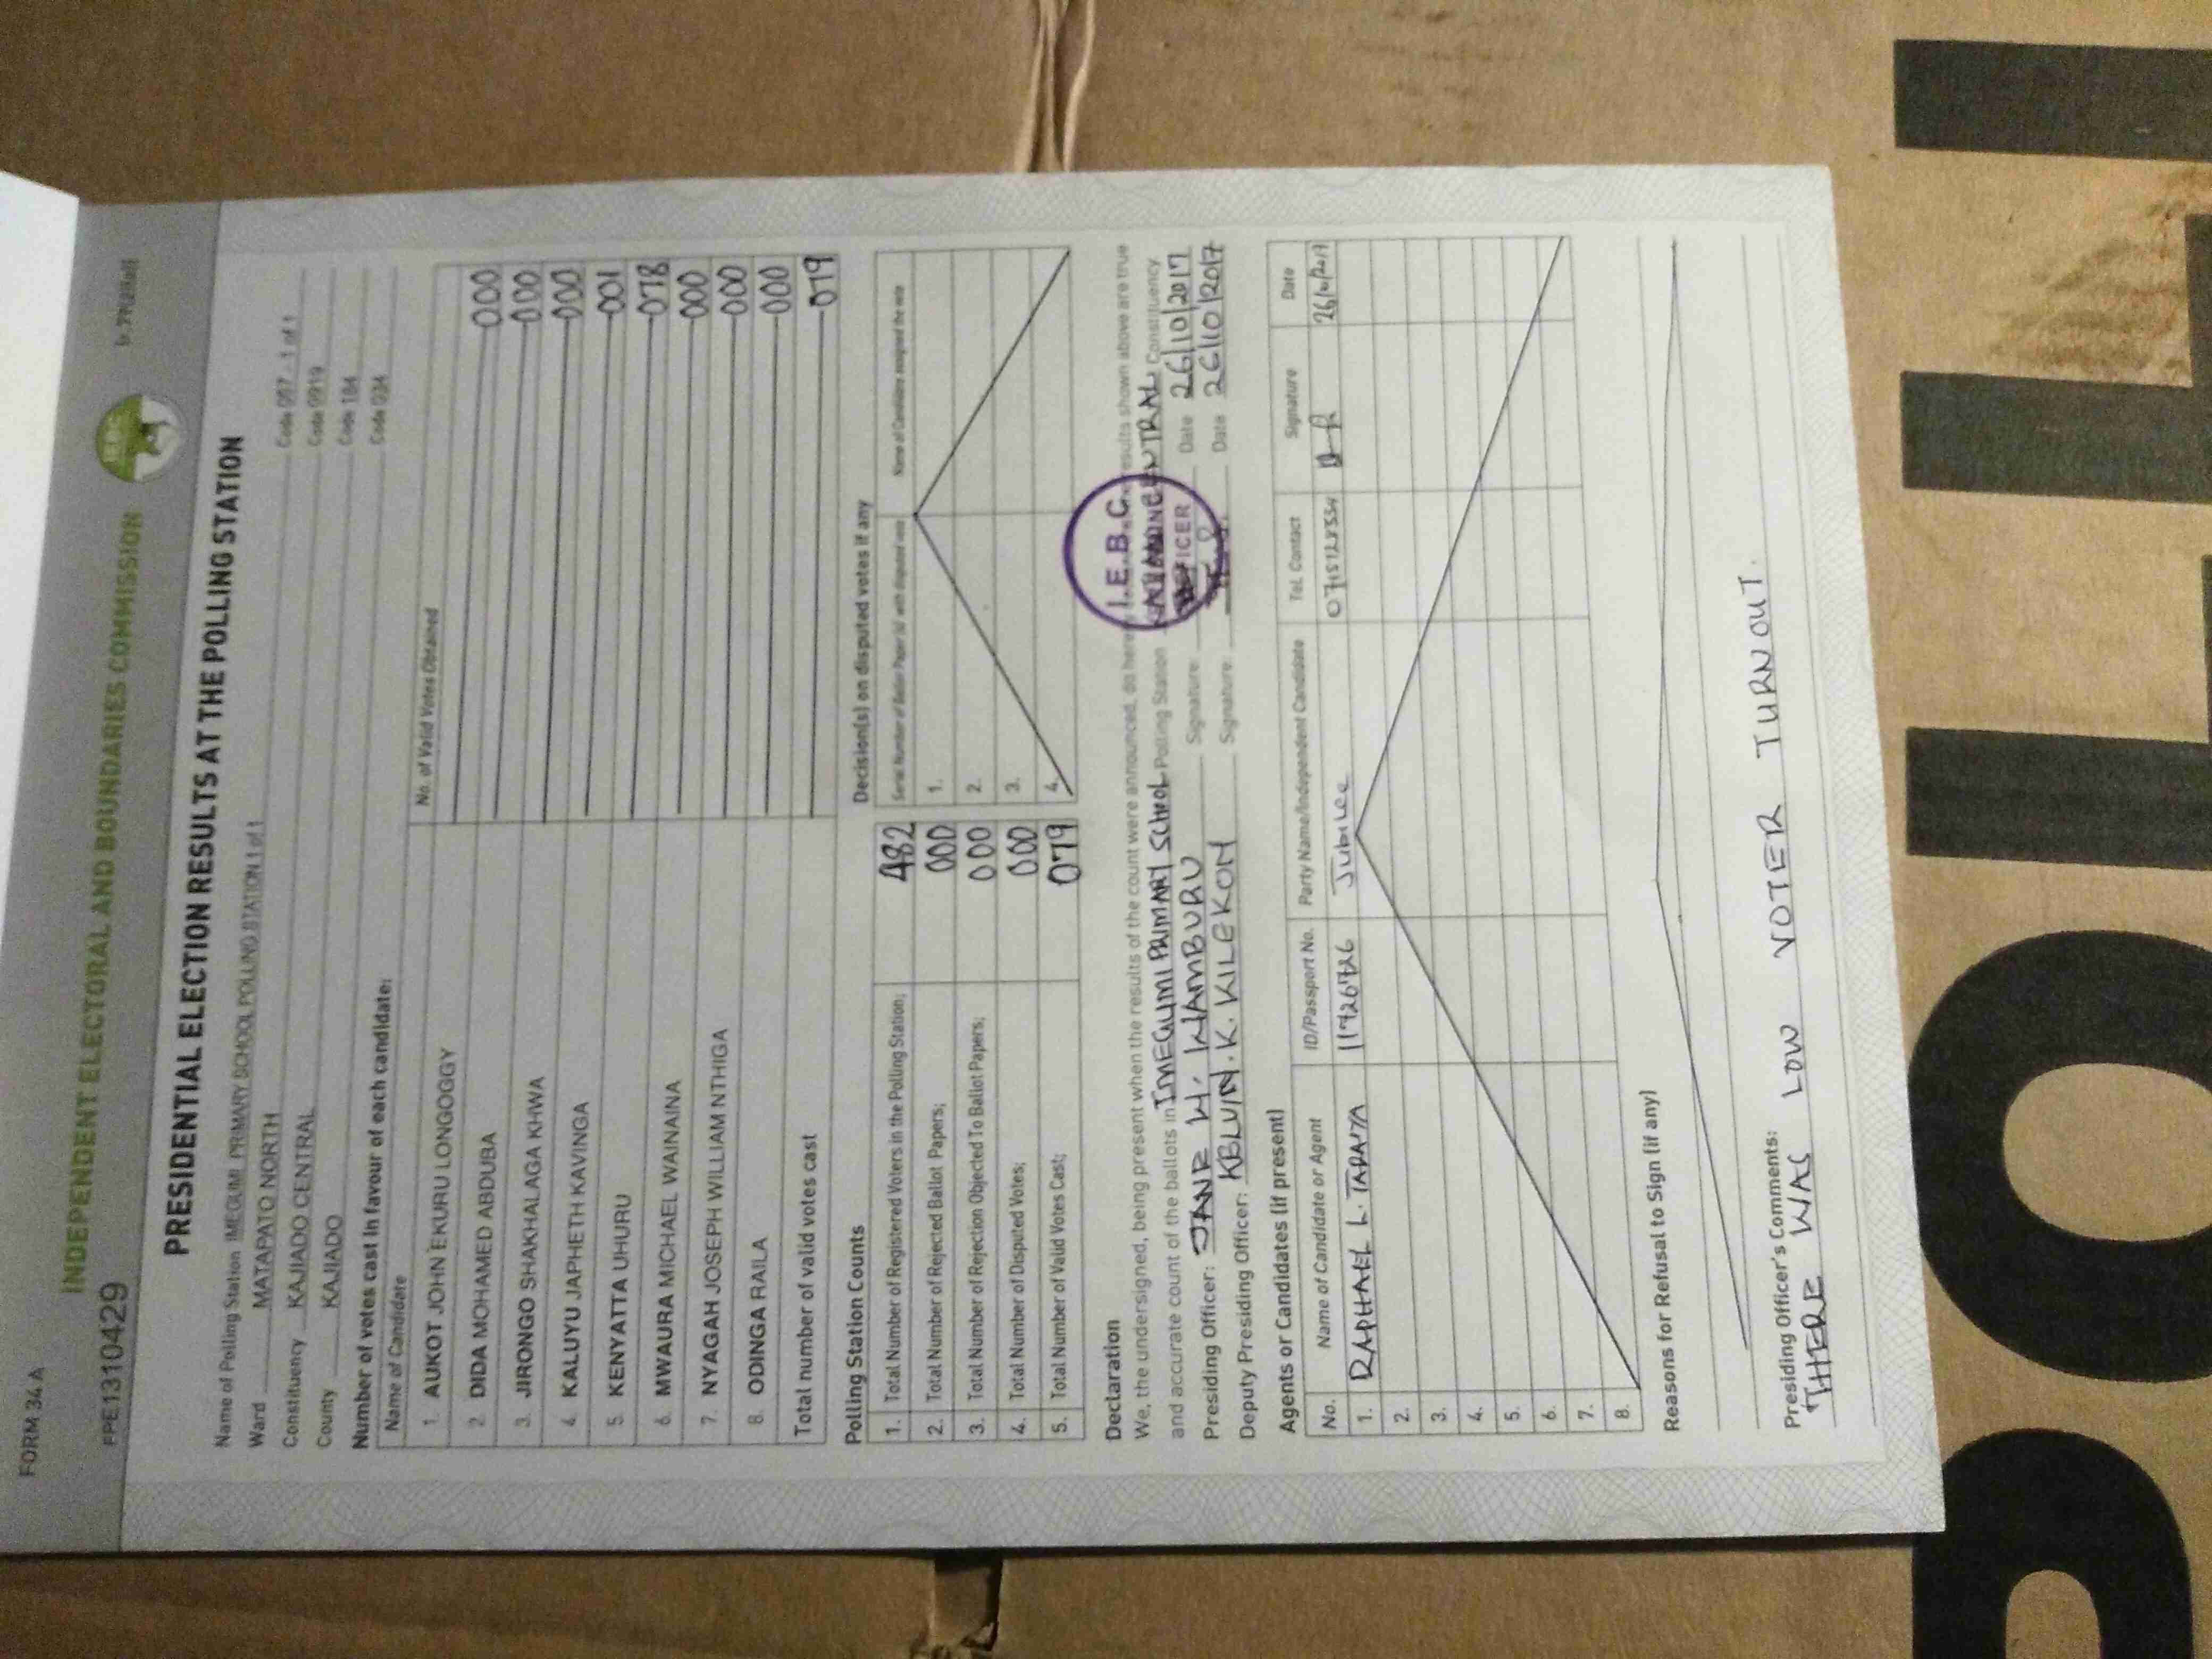 FORM 34 A
INDEPENDENT ELECTORAL AND BOUNDARIES COMMISSION
PPE1310429
PRESIDENTIAL ELECTION RESULTS AT THE POLLING STATION
Name of Polling Station IMEGUMI PRIMARY SCHOOL POLLING STATION 1 of 1 Code 087 - 1 of 1
Ward MATAPATO NORTH Code 0919
Constituency KAJIADO CENTRAL Code 184
County KAJIADO Code 034
Number of votes cast in favour of each candidate:
Name of Candidate No. of Valid Votes Obtained
1. AUKOT JOHN EKURU LONGOGGY 000
2 DIDA MOHAMED ABDUBA 000
3. JIRONGO SHAKHALAGA KHWA 000
4. KALUYU JAPHETH KAVINGA 001
5. KENYATTA UHURU 078
6. MWAURA MICHAEL WAINAINA 000
7. NYAGAH JOSEPH WILLIAM NTHIGA 000
8. ODINGA RAILA 000
Total number of valid votes cast 079
Polling Station Counts Decision(s) on disputed votes if any
1. Total Number of Registered Voters in the Polling Station; 482
2. Total Number of Rejected Ballot Papers; 000
3. Total Number of Rejection Objected To Ballot Papers; 000
4. Total Number of Disputed Votes; 000
5. Total Number of Valid Votes Cast; 079
Serial Number of Ballot Paper(s) with disputed vote Name of Candidate assigned the vote
1.
2.
3.
4.
Declaration
We, the undersigned, being present when the results of the count were announced, do hereby results shown above are true
and accurate count of the ballots in IMEGUMI PRIMARY SCHOOL Polling Station CENTRAL Constituency
I.E.B.C.
OFFICER
Presiding Officer: JANE W. WAMBURU Signature: Date 26/10/2017
Deputy Presiding Officer: KELVIN. K. KILEKOH Signature: Date 26/10/2017
Agents or Candidates (if present)
No. Name of Candidate or Agent ID/Passport No. Party Name/Independent Candidate Tel. Contact Signature Date
1. RAPHAEL L. Jubilee 26/10/2017
2.
3.
4.
5.
6.
7.
8.
Reasons for Refusal to Sign (if any)
Presiding Officer's Comments:
THERE WAS LOW VOTER TURNOUT.